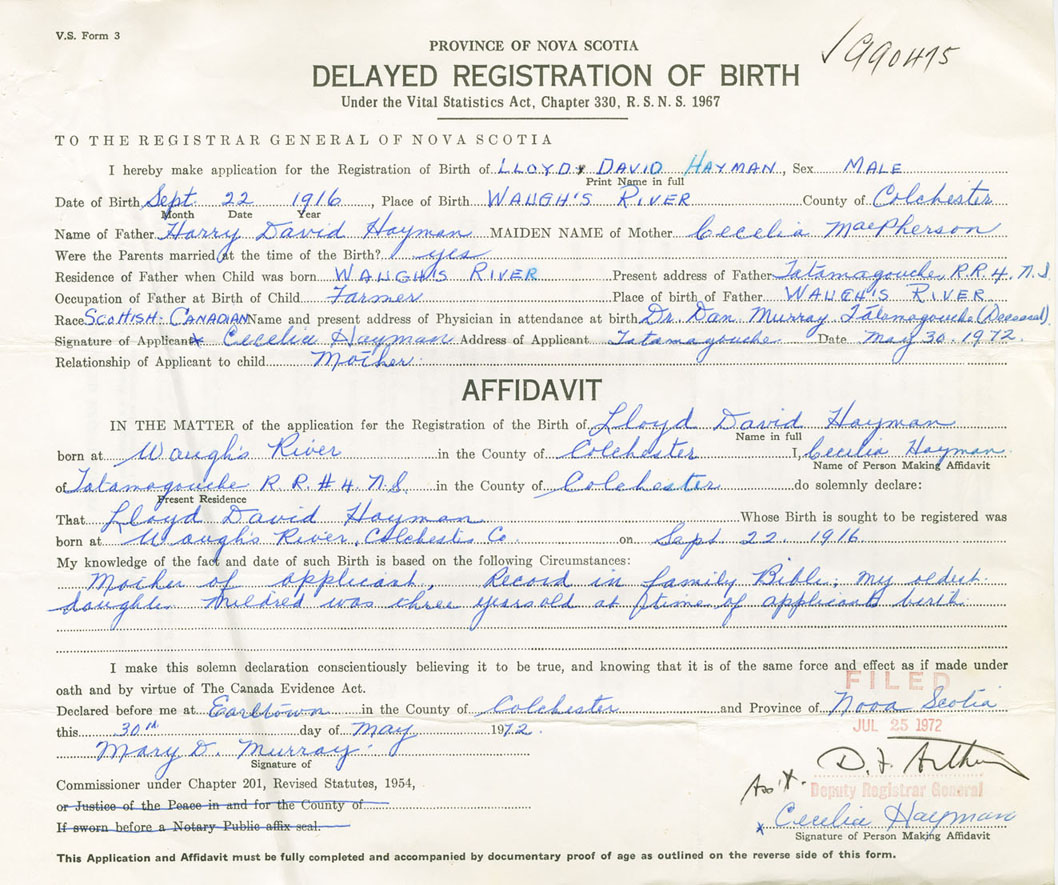 V.S. Form 3
PROVINCE OF NOVA SCOTIA
990475
DELAYED REGISTRATION OF BIRTH
Under the Vital Statistics Act, Chapter 330, R.S.N.S. 1967
TO THE REGISTRAR GENERAL OF NOVA SCOTIA
I hereby make application for the Registration of Birth of LLOYD DAVID HAYMAN, Sex MALE
Print Name in full
Date of Birth Sept 22 1916, Place of Birth WAUGH'S RIVER County of Colchester
Month Date Year
Name of Father Harry David Hayman MAIDEN NAME of Mother Cecelia MacPherson
Were the Parents married at the time of the Birth? yes
Residence of Father when Child was born WAUGH'S RIVER Present address of Father Tatamagouche R.R.4. N.S.
Occupation of Father at Birth of Child Farmer Place of birth of Father WAUGH'S RIVER
Race SCOTTISH-CANADIAN Name and present address of Physician in attendance at birth Dr. Dan Murray Tatamagouche (Deceased).
Signature of Applicant x Cecelia Hayman Address of Applicant Tatamagouche Date May 30. 1972.
Relationship of Applicant to child Mother
AFFIDAVIT
IN THE MATTER of the application for the Registration of the Birth of Lloyd David Hayman
Name in full
born at Waugh's River in the County of Colchester I, Cecilia Hayman
Name of Person Making Affidavit
of Tatamagouche R R #4 N.S. in the County of Colchester do solemnly declare:
Present Residence
That Lloyd David Hayman Whose Birth is sought to be registered was
born at Waugh's River, Colchester Co. on Sept 22. 1916
My knowledge of the fact and date of such Birth is based on the following Circumstances:
Mother of applicant, Record in family Bible; my oldest
daughter Mildred was three years old at time of applicants birth.
I make this solemn declaration conscientiously believing it to be true, and knowing that it is of the same force and effect as if made under
oath and by virtue of The Canada Evidence Act.
FILED
Declared before me at Earltown in the County of Colchester and Province of Nova Scotia
JUL 25 1972
this 30th day of May 1972.
Mary D. Murray
Signature of
D. F. Arthur
Commissioner under Chapter 201, Revised Statutes, 1954,
Ass't. Deputy Registrar General
or Justice of the Peace in and for the County of
x Cecelia Hayman
If sworn before a Notary Public affix seal.
Signature of Person Making Affidavit
This Application and Affidavit must be fully completed and accompanied by documentary proof of age as outlined on the reverse side of this form.